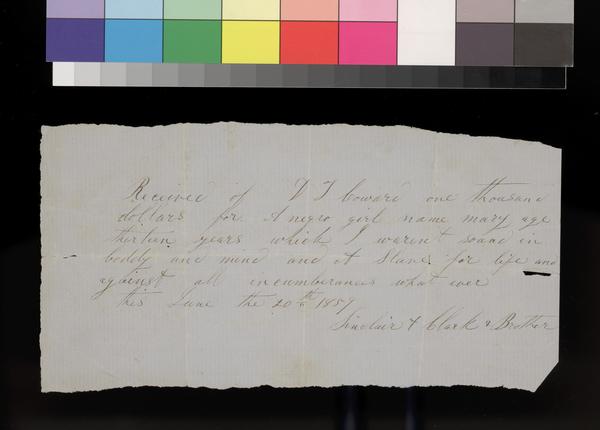 Received of D J Coward one thousand
dollars for A negro girl name mary age
thirteen years which I warent sound in
boddy and mind and A Slave for life and
against all incumberances what ever
this June the 20th 1859
Sinclair & Clark & Brother